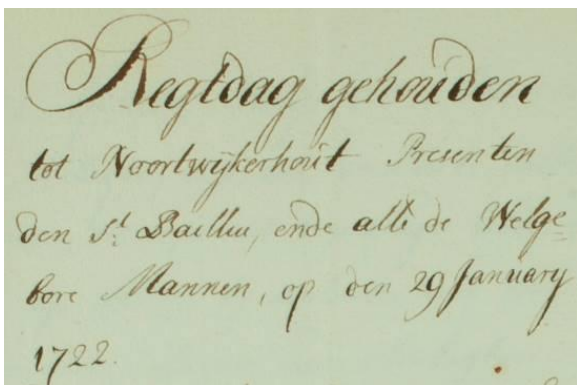 Regtdag gehouden
tot Noortwijkerhout Presenten
den St. Bailliu, ende alle de Welge=
bore Mannen, op den 29 January
1722.